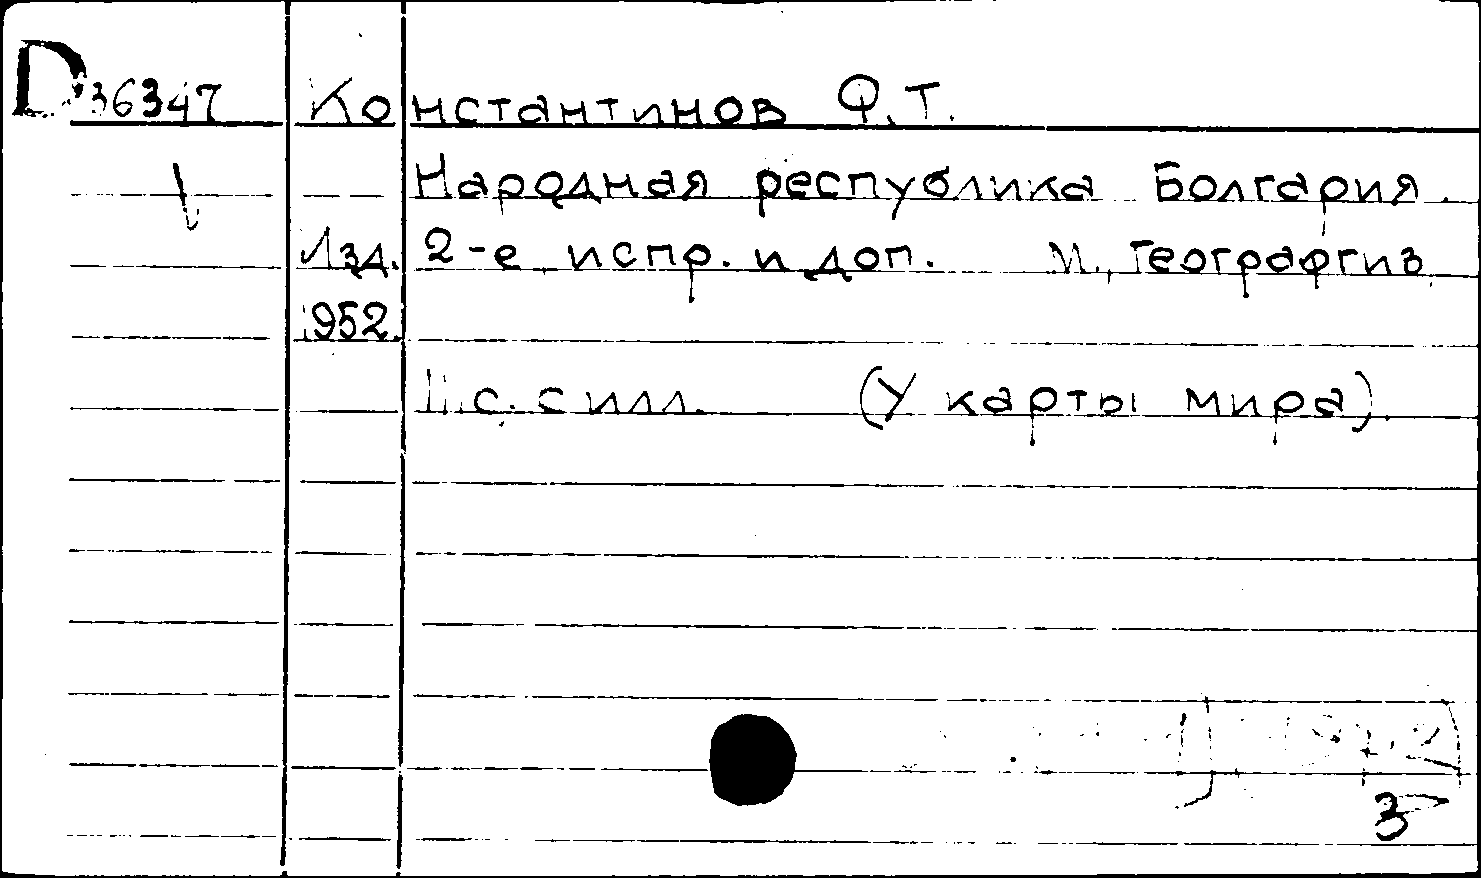 D 36347 Константинов Ф.Т.
Народная республика Болгария.
Изд. 2-е испр. и доп. М., Географгиз
1952.
с. с илл. (У карты мира).
3